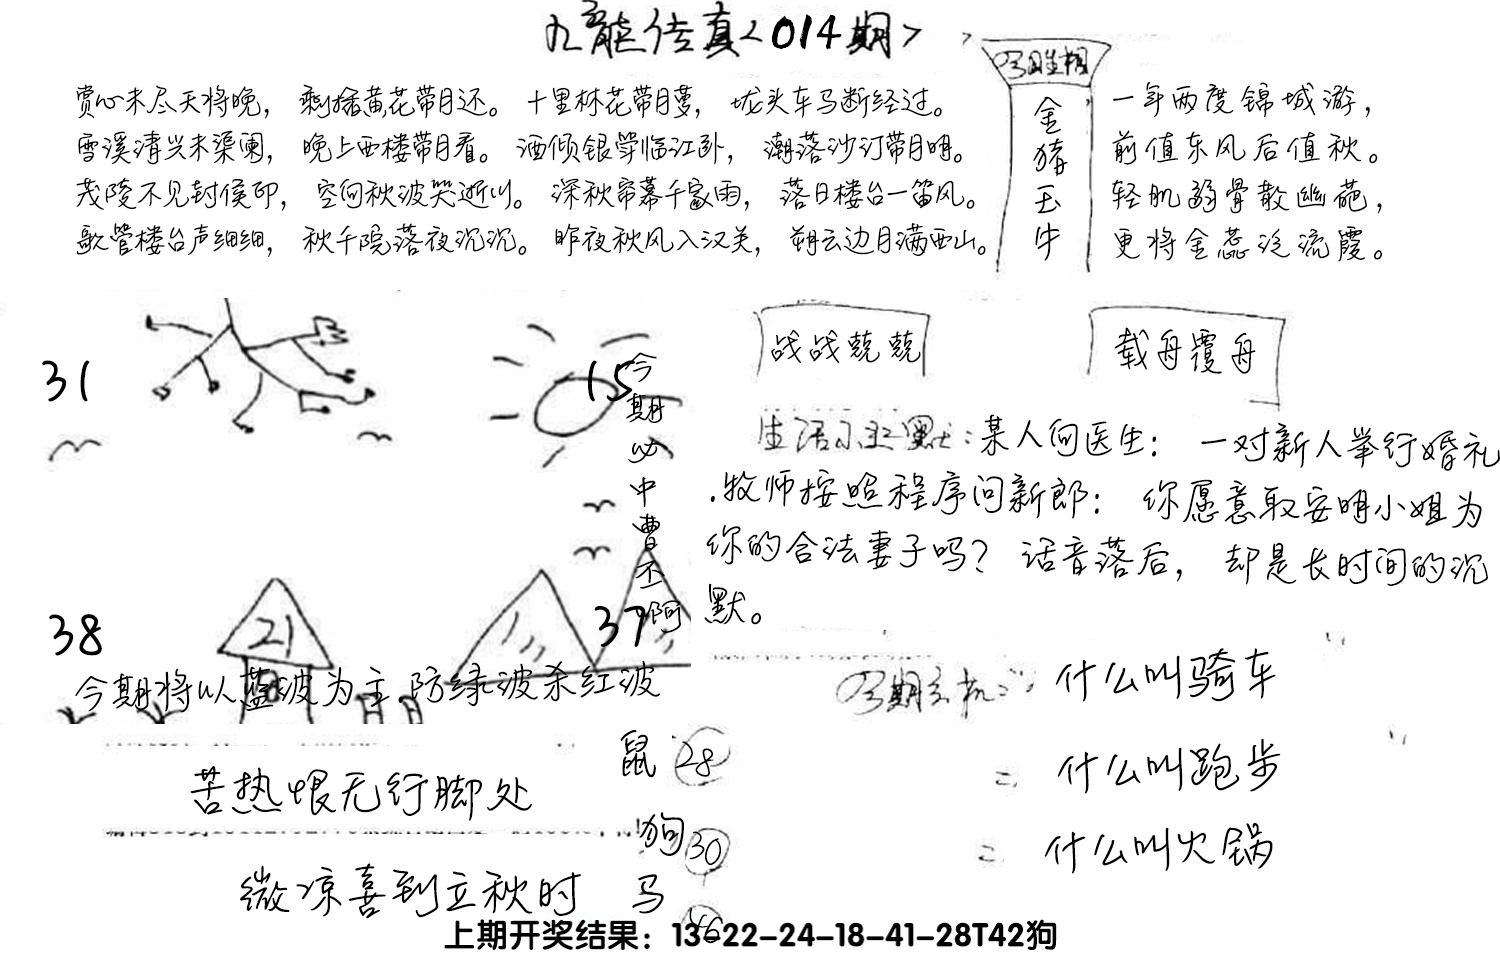 九龙传真<014期>
赏心未尽天将晚，剩插黄花带月还。十里林花带月萝，垅头车马断经过。
雪溪清兴未渠阑，晚上西楼带月看。酒倾银斝临江卧，潮落沙汀带月明。
茂陵不见封侯印，空向秋波哭逝川。深秋帘幕千家雨，落日楼台一笛风。
歌管楼台声细细，秋千院落夜沉沉。昨夜秋风入汉关，朔云边月满西山。
今日生相
金猪玉牛
一年两度锦城游，
前值东风后值秋。
轻肌弱骨散幽葩，
更将金蕊泛流霞。
31
15
38
21
37
今期必中曹丕阿
今期将以蓝波为主.防绿波杀红波
战战兢兢
载舟覆舟
生活幽默：某人问医生：一对新人举行婚礼
.牧师按照程序问新郎：你愿意取安明小姐为
你的合法妻子吗？话音落后，却是长时间的沉
默。
什么叫骑车
= 什么叫跑步
= 什么叫火锅
苦热恨无行脚处
微凉喜到立秋时
鼠 28
狗 30
马 46
上期开奖结果：13-22-24-18-41-28T42狗